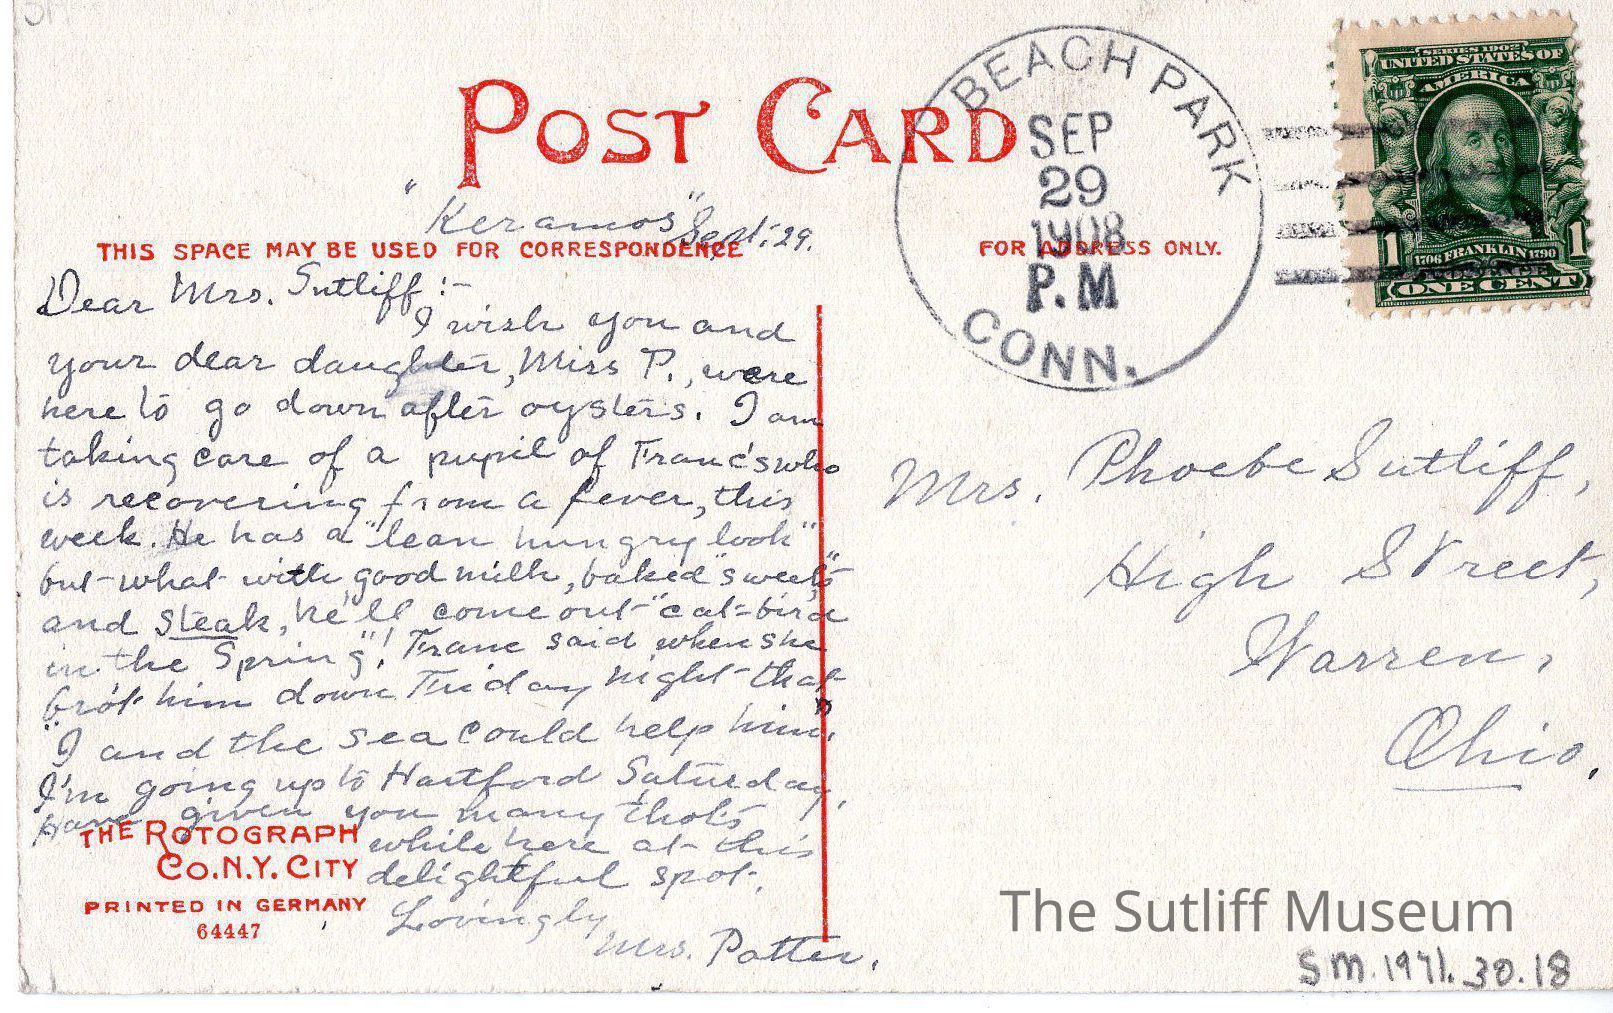 POST CARD
BEACH PARK
SEP
29
1908
P.M
CONN.
SERIES 1902
UNITED STATES OF
AMERICA
1 1706 FRANKLIN 1790 1
ONE CENT
"Keramos" Sept. 29.
THIS SPACE MAY BE USED FOR CORRESPONDENCE
FOR ADDRESS ONLY.
Dear Mrs. Sutliff :-
I wish you and
your dear daughter, Miss P., were
here to go down after oysters. I am
taking care of a pupil of Franc's who
is recovering from a fever, this
week. He has a "lean hungry look"
but what with good milk, baked "sweets"
and steak, he'll come out "cat-bird
in the Spring"! Franc said when she
bro't him down Friday night that
"I and the sea could help him."
I'm going up to Hartford Saturday.
Have given you many thots
while here at this
delightful spot.
Lovingly
Mrs. Potter.
THE ROTOGRAPH
CO. N.Y. CITY
PRINTED IN GERMANY
64447
Mrs. Phoebe Sutliff,
High Street,
Warren,
Ohio.
The Sutliff Museum
SM.1971.30.18